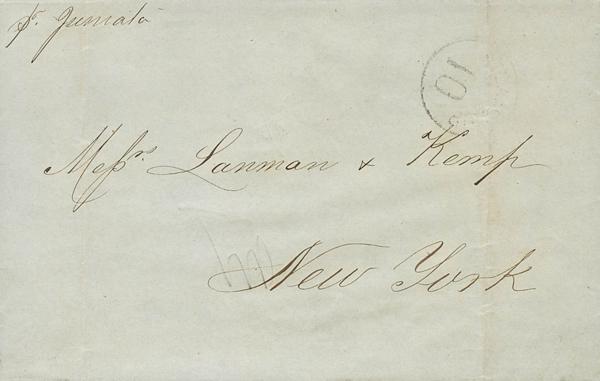 pr. Jumala
10
Messrs. Lanman & Kemp
New York